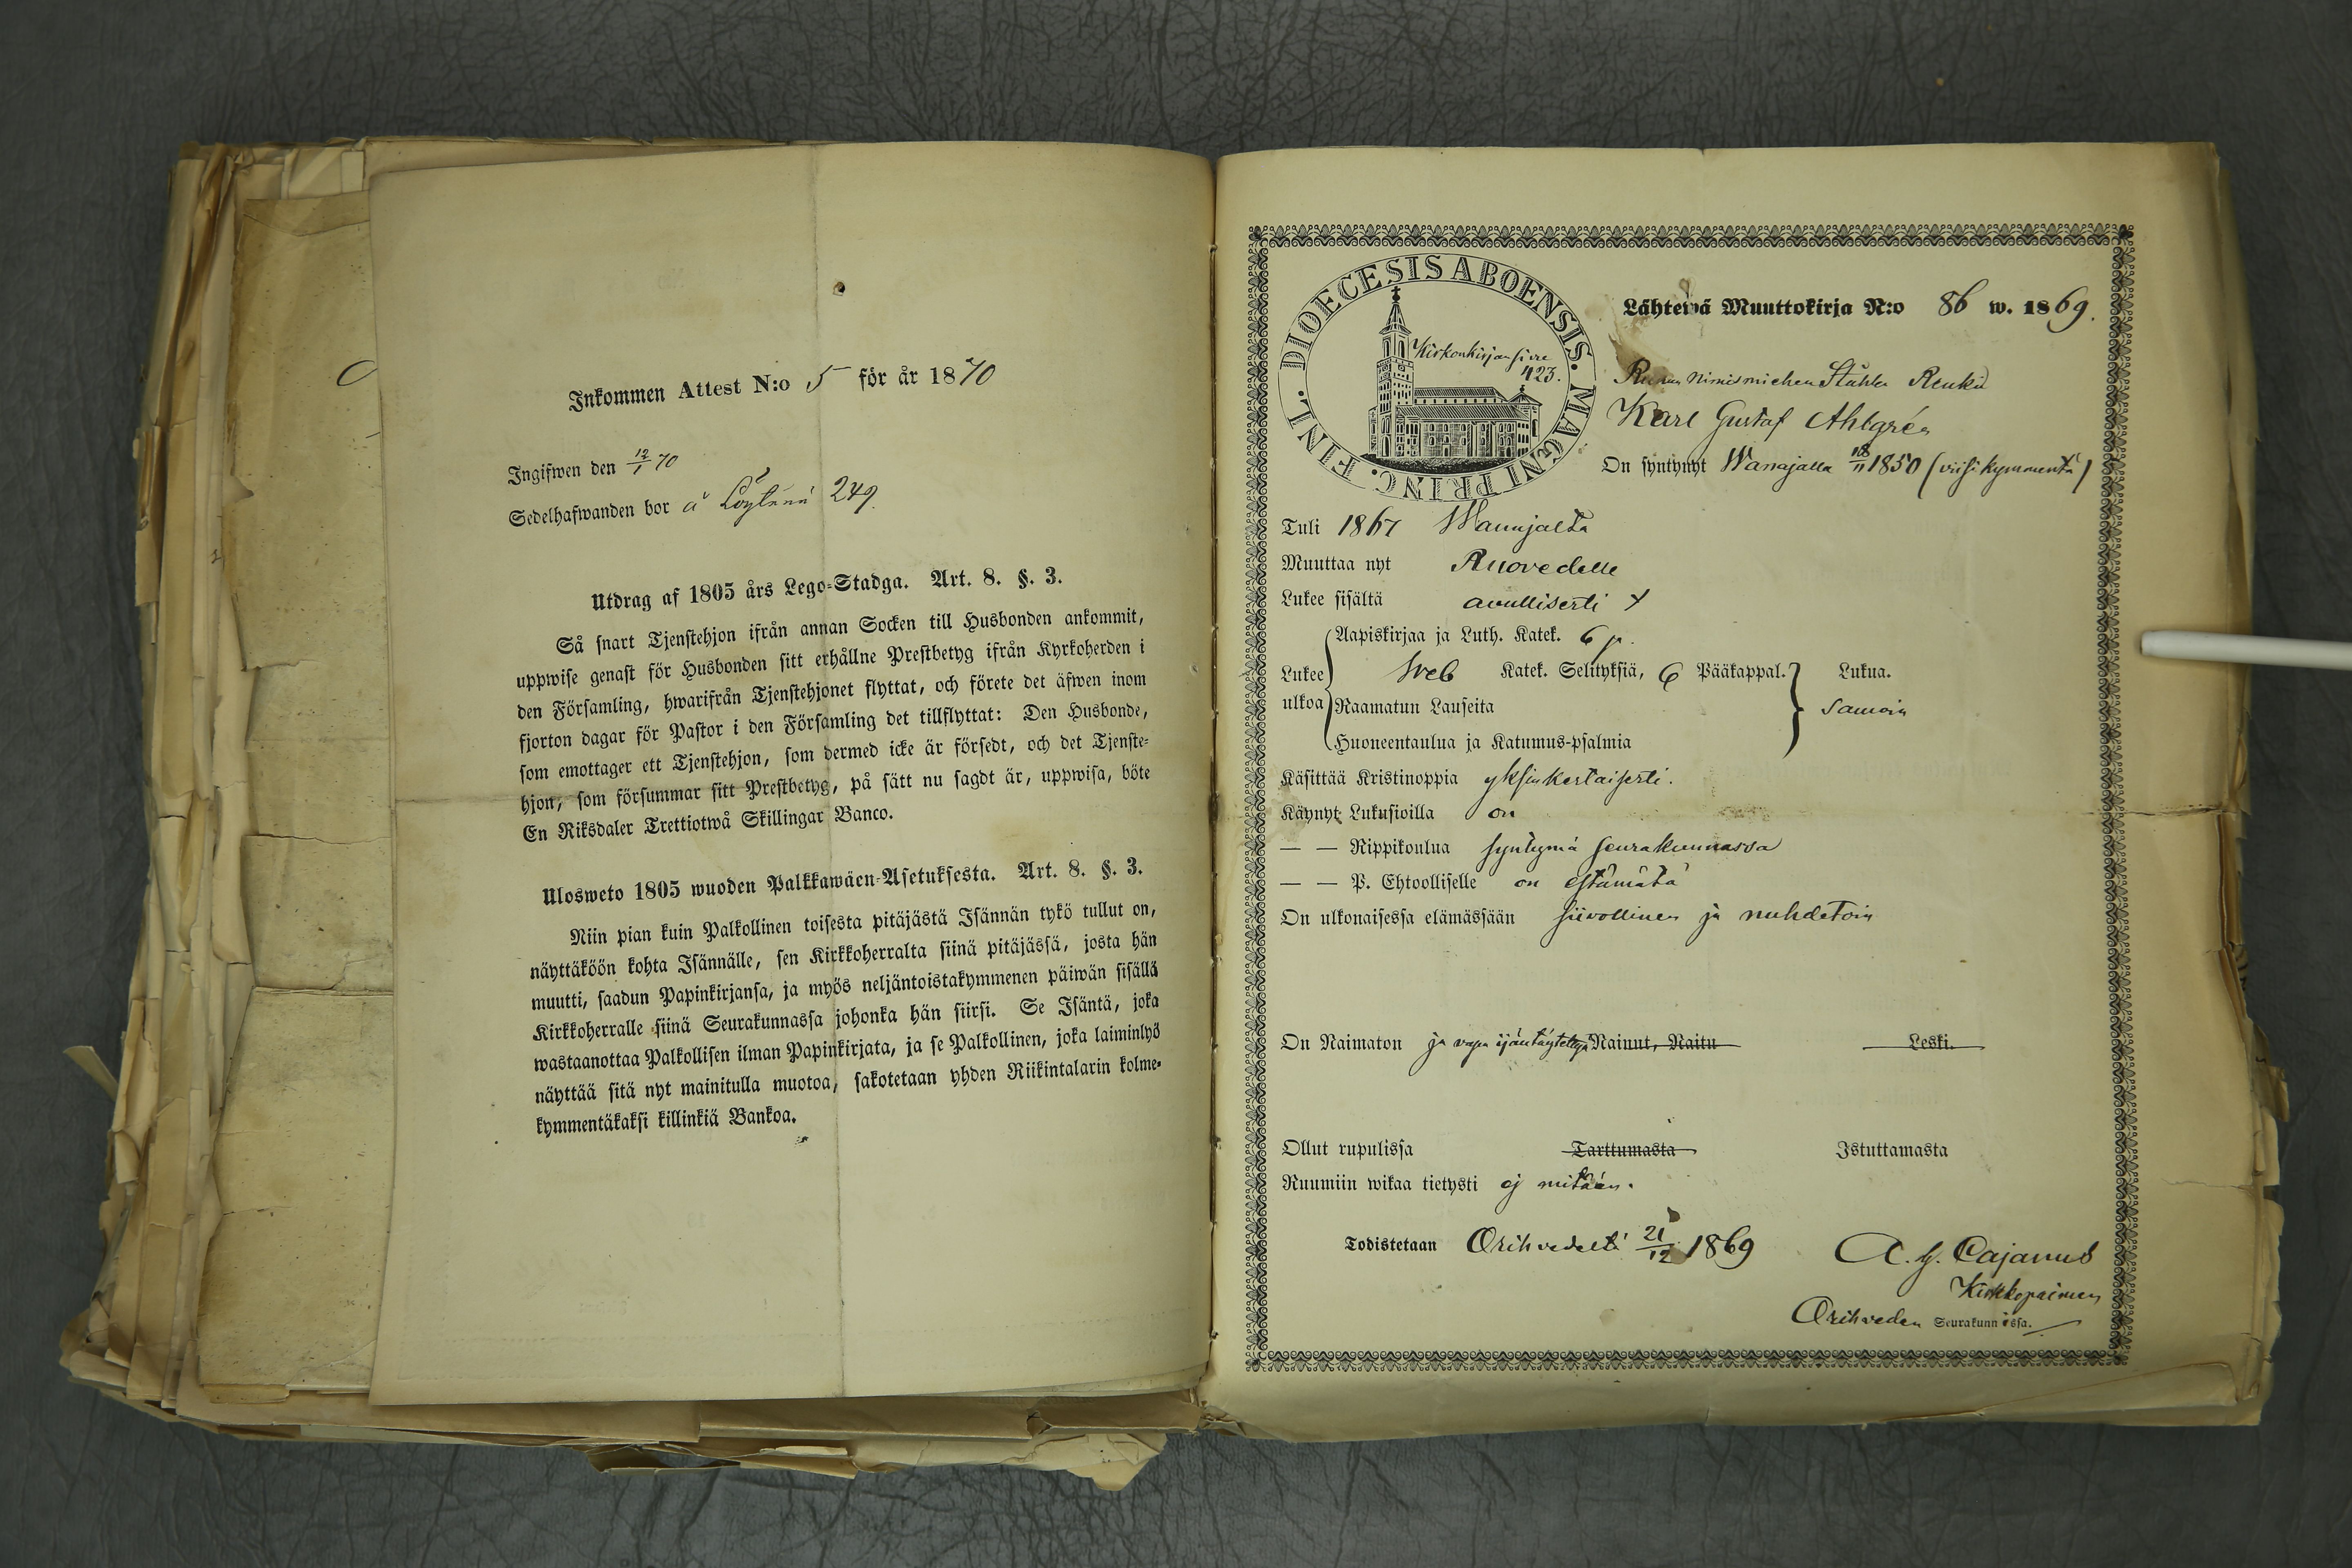 Inkommen Attest N:o 5 för år 1870
Ingifwen den 12/1 70
Sedelhafwanden bor å Löytänä 249.
Utdrag af 1805 års Lego-Stadga. Art. 8. §. 3.
Så snart Tjenstehjon ifrån annan Socken till Husbonden ankommit,
uppwise genast för Husbonden sitt erhållne Prestbetyg ifrån Kyrkoherden i
den Församling, hwarifrån Tjenstehjonet flyttat, och förete det äfwen inom
fjorton dagar för Pastor i den Församling det tillflyttat: Den Husbonde,
som emottager ett Tjenstehjon, som dermed icke är försedt, och det Tjenste-
hjon, som försummar sitt Prestbetyg, på sätt nu sagdt är, uppwisa, böte
En Riksdaler Trettiotwå Skillingar Banco.
Ulosweto 1805 wuoden Palkkawäen-Asetuksesta. Art. 8. §. 3.
Niin pian kuin Palkollinen toisesta pitäjästä Isännän tykö tullut on,
näyttäköön kohta Isännälle, sen Kirkkoherralta siinä pitäjässä, josta hän
muutti, saadun Papinkirjansa, ja myös neljäntoistakymmenen päiwän sisällä
Kirkkoherralle siinä Seurakunnassa johonka hän siirsi. Se Isäntä, joka
wastaanottaa Palkollisen ilman Papinkirjata, ja se Palkollinen, joka laiminlyö
näyttää sitä nyt mainitulla muotoa, sakotetaan yhden Riikintalarin kolme-
kymmentäkaksi killinkiä Bankoa.
DIOECESIS ABOENSIS. MAGNI PRINC. FINL.
Kirkonkirjan sivu
423.
Lähtewä Muuttokirja N:o 86 w. 1869.
nimismiehen Ståhle Renki
Karl Gustaf Ahlgrén
On syntynyt Wanajalla 18/11 1850 (viisikymmentä)
Tuli 1867 Wanajalta
Muuttaa nyt Ruovedelle
Lukee sisältä avullisesti
Aapiskirjaa ja Luth. Katek. 6 p.
Lukee Sveb Katek. Selityksiä, 6 Pääkappal. Lukua.
ulkoa Raamatun Lauseita samoin
Huoneentaulua ja Katumus-psalmia
Käsittää Kristinoppia yksinkertaisesti.
Käynyt Lukusioilla on
— — Rippikoulua syntymä seurakunnassa
— — P. Ehtoolliselle on estämätä
On ulkonaisessa elämässään siivollinen ja nuhdetoin
On Naimaton ja vapa Nainut, Naitu Leski.
Ollut rupulissa Tarttumasta Istuttamasta
Ruumiin wikaa tietysti ej mitään.
Todistetaan Orihvedeltä 21/12 1869 A. G. Cajanus
Kirkkopaimen
Orihveden Seurakunnissa.